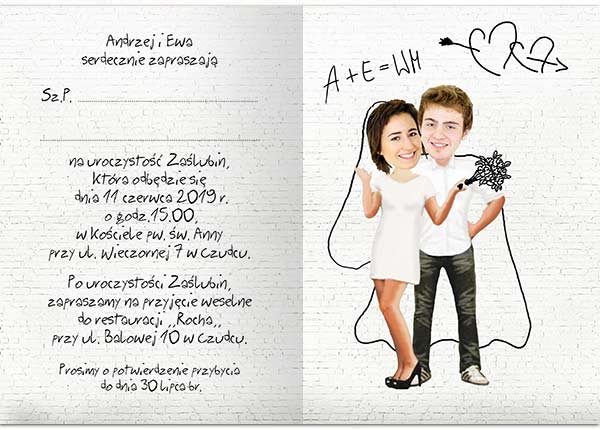 Andrzej i Ewa
serdecznie zapraszają
Sz.P. ..........................................................
..........................................................................
na uroczystość Zaślubin,
która odbędzie się
dnia 11 czerwca 2019 r.
o godz.15.00,
w Kościele pw. św. Anny
przy ul. Wieczornej 7 w Czudcu.
Po uroczystości Zaślubin,
zapraszamy na przyjęcie weselne
do restauracji ,,Rocha,,
przy ul. Balowej 10 w Czudcu.
Prosimy o potwierdzenie przybycia
do dnia 30 lipca br.
A + E = WM